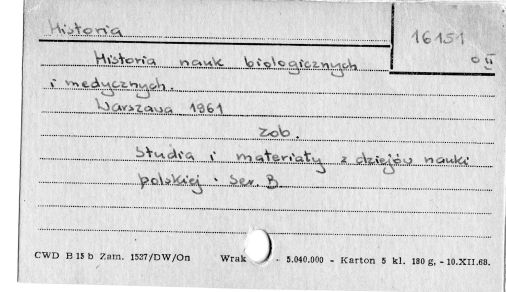 Historia
16151
II
Historia nauk biologicznych
i medycznych.
Warszawa 1961
zob.
Studia i materiały z dziejów nauki
polskiej. Ser. B.
CWD B 15 b Zam. 1527/DW/On Wrak . - 5.040.000 - Karton 5 kl. 180 g, - 10.XII.68.